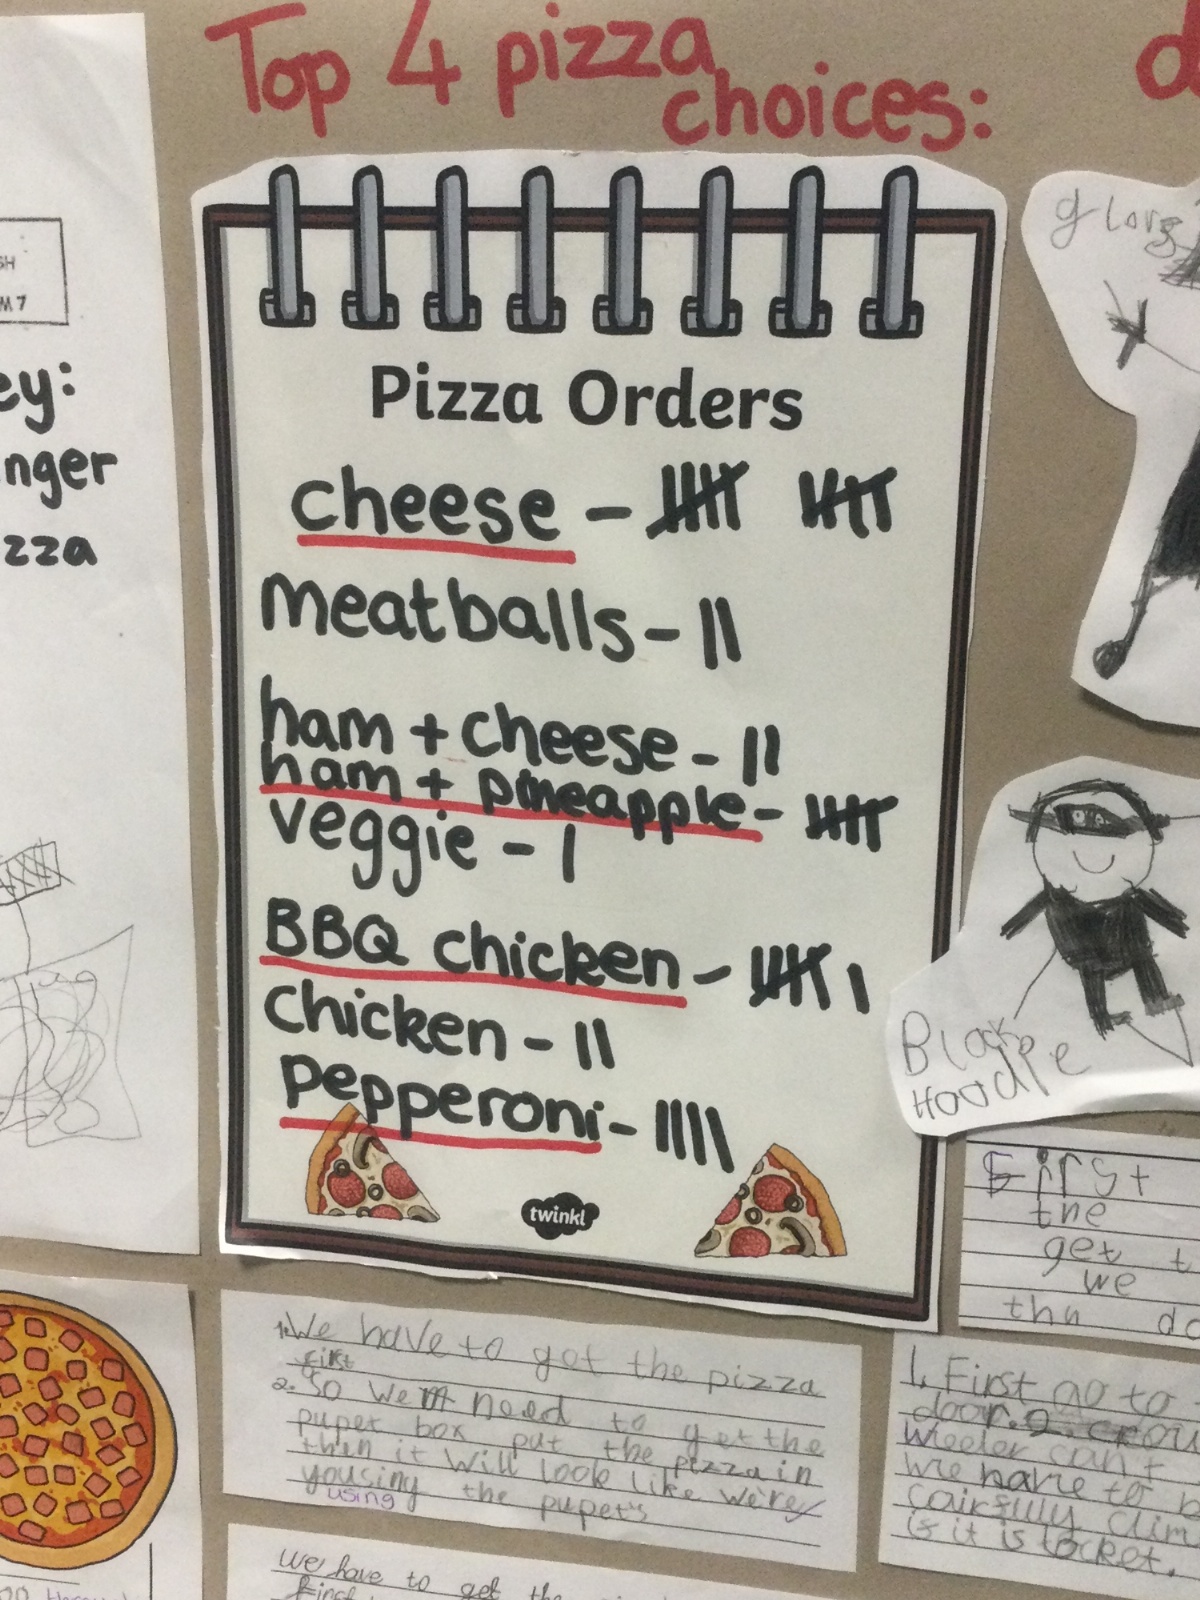 Top 4 pizza
choices:
SH
M 7
ey:
nger
zza
Pizza Orders
cheese - 𝍸 𝍸
meatballs - ||
ham + cheese - ||
ham + pineapple - 𝍸
veggie - |
BBQ chicken - 𝍸 |
chicken - ||
pepperoni - ||||
twinkl
Black
Hoodie
First
the
get t
we
thn do
1. We have to get the pizza
first
2. So we need to get the
pupet box put the pizza in
then it will look like we're
yousing the pupet's
using
1. First go to
door. 2.
can't
we have to

is it is locket.
We have to get the
first